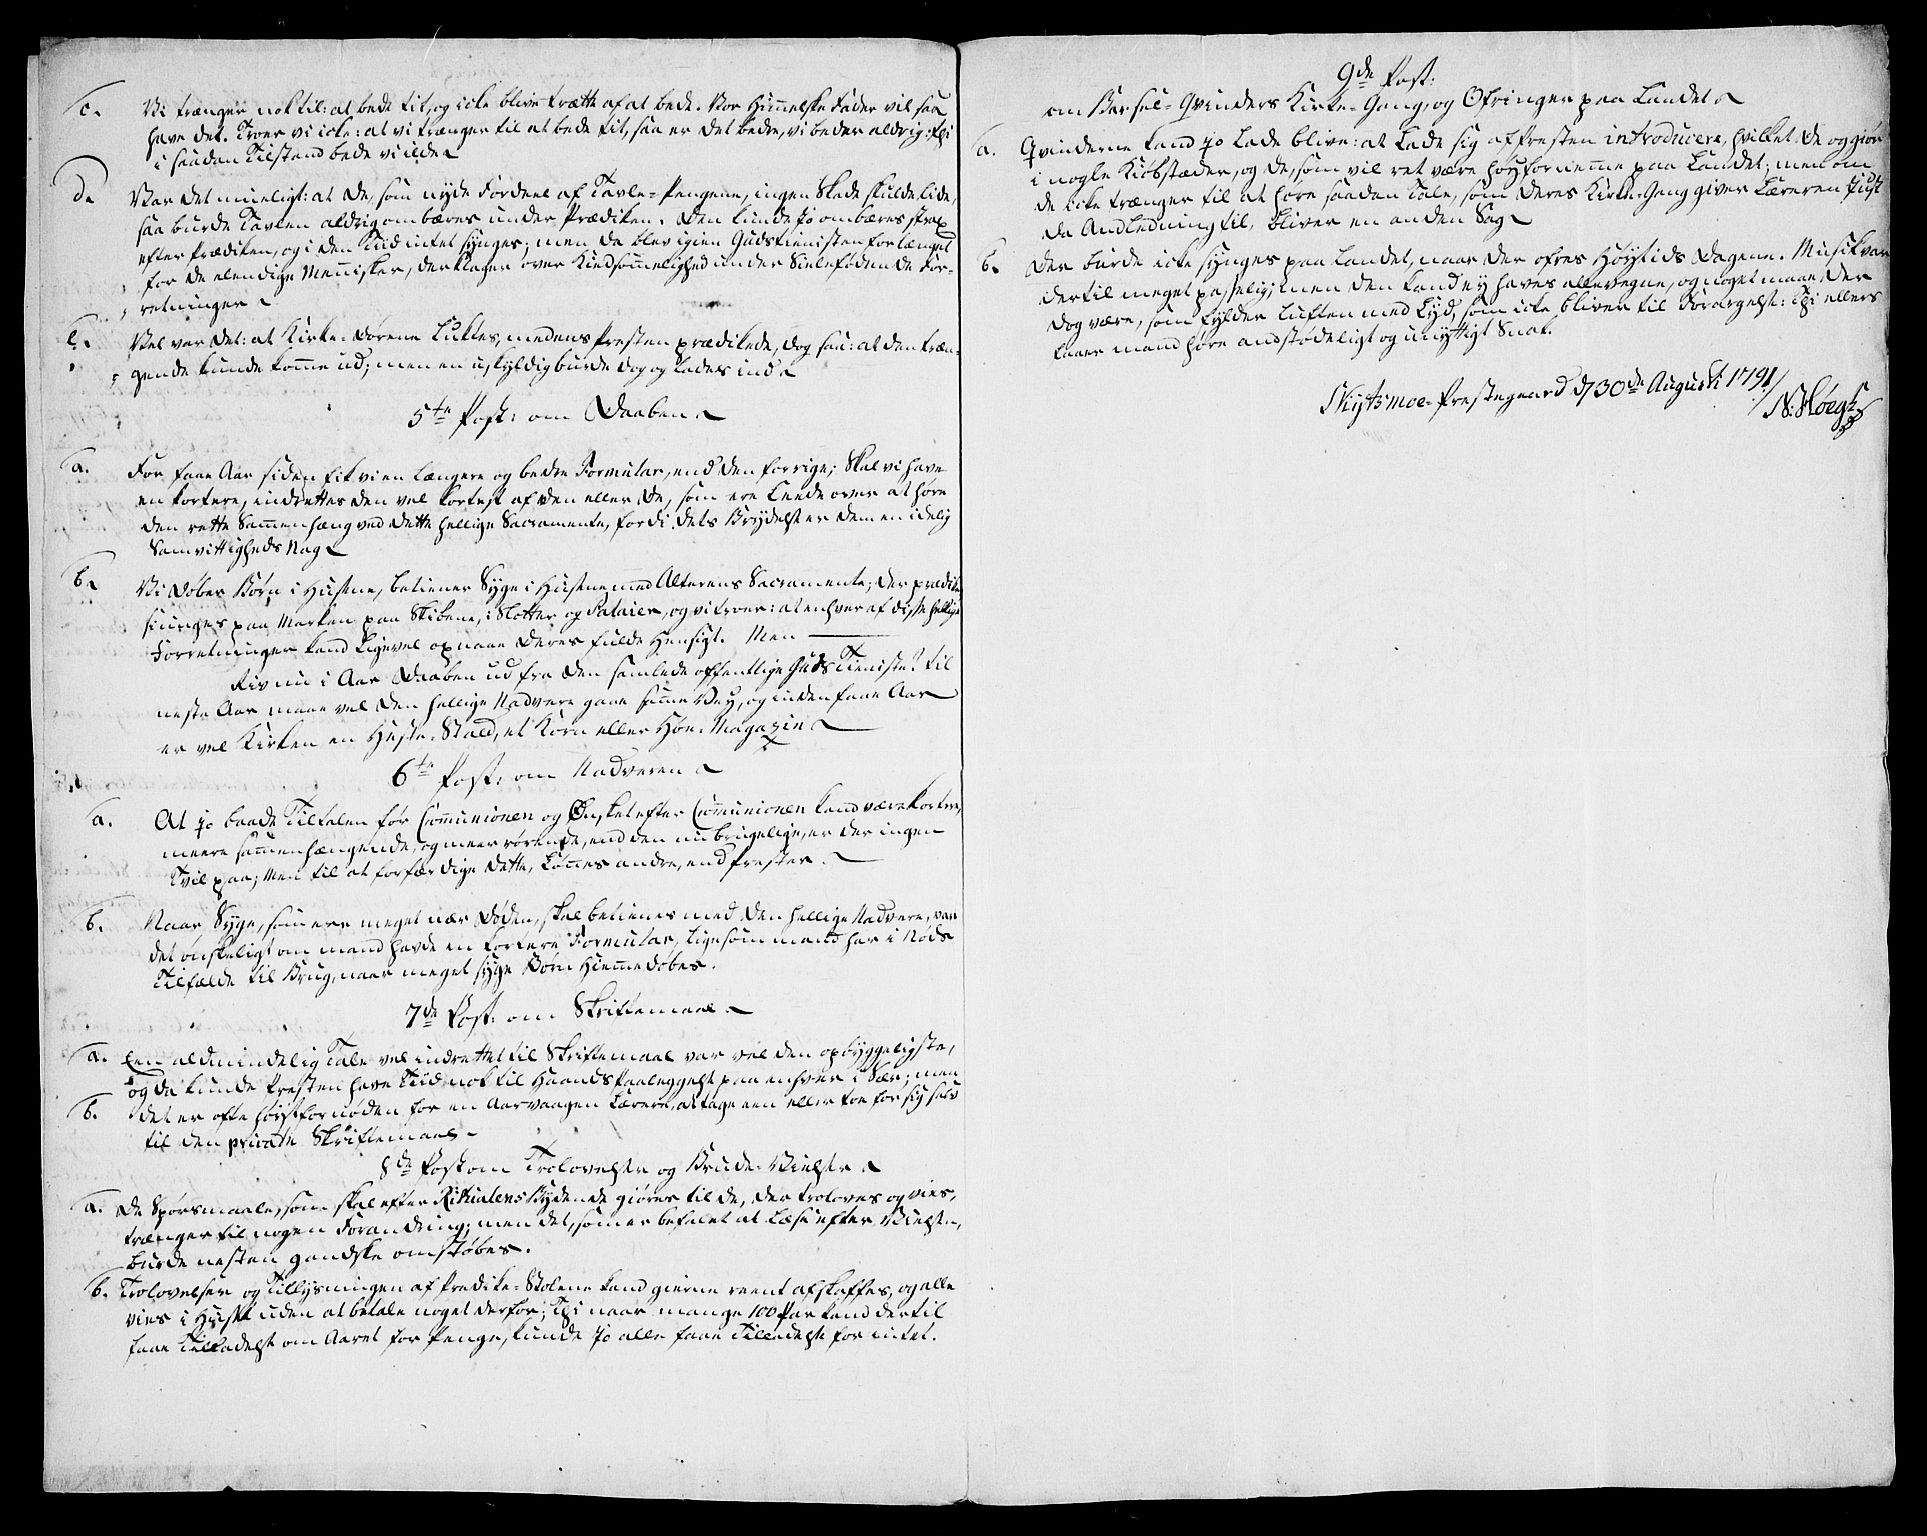 c. Vi trænger nok til: at bede tit, og icke blive trætte af at bede. Vor Himmelske Fader vil saa
have det. Troer vi icke: at vi trænger til at bede tit, saa er det bedre, vi beder aldrig; thi
i saadan Tilstand bede vi ilde
d. Var det mueligt: at de, som nyde Fordeel af Tavle-Pengene, ingen Skade skulde lide,
saa burde Tavlen aldrig ombæres under Prædiken. Den kunde jo ombæres strax
efter Prædiken, og i den Tiid intet synges; men da blev igien Gudstienisten forlænget
for de elendige Mennisker, der klager over Kiedsommelighed under Sieleføde Forretninger
retninger
e. Vel var det: at Kirke-Dørene lukkes, medens Presten prædikede, dog saa: at den træn-
gende kunde komme ud; men en uskyldig burde dog og lades ind
5te Post: om Daaben
a. For faae Aar siden fik vi en længere og bedre Formular, end den forrige; Skal vi have
en kortere, indrettes den vel kortest af den eller de, som ere leede over at høre
den rette Sammenhæng ved dette hellige Sacramente, fordi dets Brydelse er dem en idelig
Samvittigheds Nag
b. Vi døber Børn i Husene, betiener Syge i Husene med Alterens Sacramente; der prædikes
siunges paa Marken paa Skibene, i Slotter og Palaier, og vi troer: at enhver af disse hellige
Forretninger kand ligevel opnaae deres fulde Hensigt. Men
Riv nu i Aar Daaben ud fra den samlede offentlige Guds Tieniste! til
neste Aar maae vel den hellige Nadvere gaae samme Vey, og inden faae Aar
er vel Kirken en Heste-Stald, et Korn eller Høe-Magazin
6te Post: om Nadveren
a. At jo baade Tiltalen før Communionen og Ønsket efter Communionen kand være kortere,
meere sammenhængende, og meer rørende, end den nu brugelige, er der ingen
Tvil paa; men til at forfærdige dette, lønnes andre, end Prester.
b. Naar Syge, som ere meget nær Døden, skal betienes med den hellige Nadvere, var
det ønskeligt om mand havde en kortere Formular, ligesom mand har i Nøds
Tilfælde til Brug, naar meget syge Børn hiemmedøbes.
7de Post: om Skriftemaal
a. Een aldmindelig Tale vel indrettet til Skriftemaal var vel den opbyggeligste,
og da kunde Presten have Tiid nok til Haands Paaleggelse paa enhver i Sær; men
b. det er ofte høystfornøden for en Aarvaagen Lærere, at tage een eller toe for sig selv
til den private Skriftemaal
8de Post om Trolovelse og Brude-Vielse
a. De Spørsmaale, som skal efter Ritualens Bydende giøres til de, der troloves og vies,
trænger til nogen Forandring; men det, som er befalet at læses efter Vielsen,
burde nesten gandske omstøbes.
b. Trolovelser og Tillysningen af Prædike-Stolene kand gierne reent afskaffes, og alle
vies i Huse uden at betale noget derfor; Thi naar mange 100 Par kand dertil
faae Tilladelse om Aaret for Penge, kunde jo alle faae Tilladelse for intet.
9de Post:
om Barsel-Qvinders Kirke-Gang, og Ofringer paa Landet
a. Qvinderne kand jo lade blive: at lade sig af Presten introducere, hvilket de og giør
i nogle Kiøbstæder, og de, som vil ret være høyfornemme paa Landet; men om
de icke trænger til at høre saadan Tale, som deres Kirke-Gang giver Læreren Just
da Andledning til, bliver en anden Sag
b. Der burde icke synges paa Landet, naar der ofres Høytids Dagene. Musik var
dertil meget passelig; men den kand ey haves allevegne, og noget maae der
dog være, som fylder Luften med Lyd, som icke bliver til Forargelse: Thi ellers
faaer mand høre andstødeligt og unyttigt Snak.
Skytsmoe-Prestegaard d 30de Augusti 1791
N: Høegh